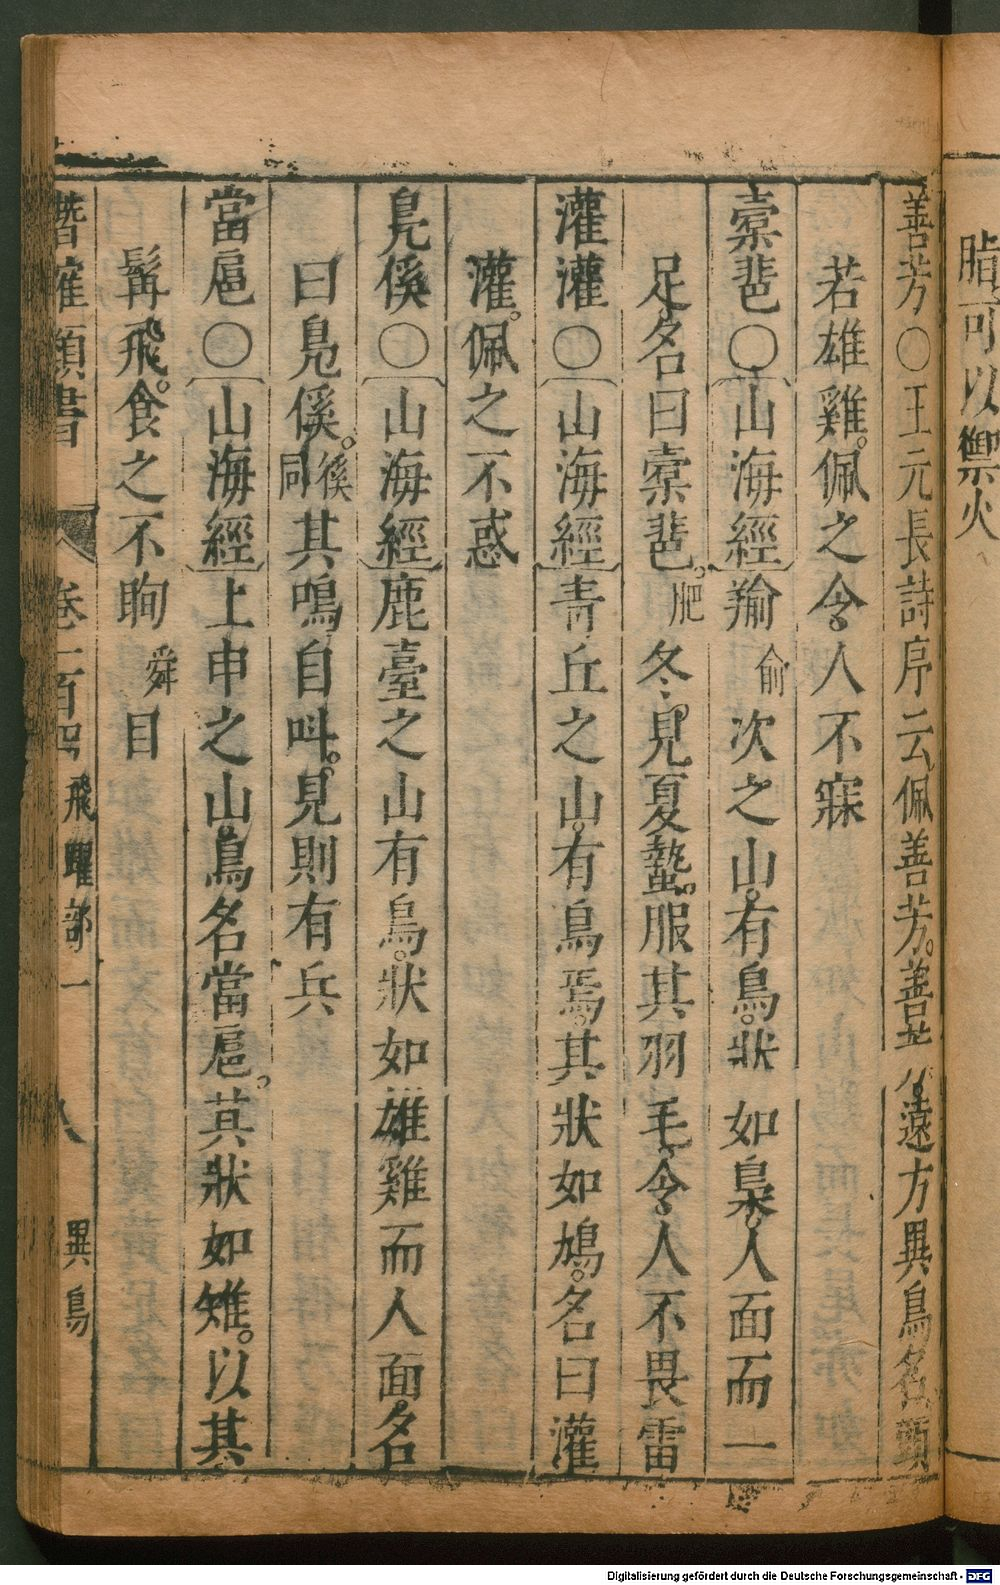 脂可以禦火
善芳○王元長詩序云佩善芳。善芳遠方異鳥名頭
若雄雞。佩之令人不寐
橐𩇯○〔山海經〕羭俞次之山。有鳥。狀如梟。人面而一
足名曰橐𩇯。肥冬見夏蟄。服其羽毛令人不畏雷
灌灌○〔山海經〕青丘之山。有鳥焉。其狀如鳩。名曰灌
灌。佩之不惑
鳧徯○〔山海經〕鹿臺之山有鳥。狀如雄雞而人面。名
曰鳧徯。徯同其鳴自呌。見則有兵
當扈○〔山海經〕上申之山。鳥名當扈。其狀如雉。以其
髯飛。食之不眴舜目
潛確類書 卷一百四 飛躍部一 八 異鳥
Digitalisierung gefördert durch die Deutsche Forschungsgemeinschaft - DFG